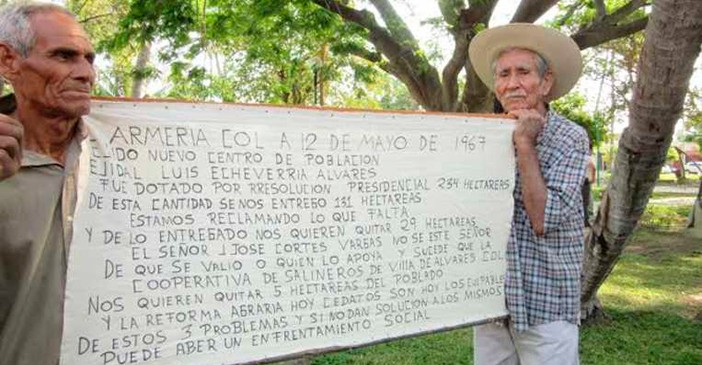 ARMERIA COL A 12 DE MAYO DE 1967
EJIDO NUEVO CENTRO DE POBLACION
EJIDAL LUIS ECHEVERRIA ALVARES
FUE DOTADO POR RRESOLUCION PRESIDENCIAL 234 HECTAREAS
DE ESTA CANTIDAD SE NOS ENTREGO 131 HECTAREAS
ESTAMOS RECLAMANDO LO QUE FALTA
Y DE LO ENTREGADO NOS QUIEREN QUITAR 29 HECTAREAS
EL SEÑOR J JOSE CORTES VARGAS NO SE ESTE SEÑOR
DE QUE SE VALIO O QUIEN LO APOYA Y SUCEDE QUE LA
COOPERATIVA DE SALINEROS DE VILLA DE ALVARES COL
NOS QUIEREN QUITAR 5 HECTAREAS DEL POBLADO
Y LA REFORMA AGRARIA HOY CEDATOS SON HOY LOS CULPABLES
DE ESTOS 3 PROBLEMAS Y SI NO DAN SOLUCION A LOS MISMOS
PUEDE ABER UN ENFRENTAMIENTO SOCIAL